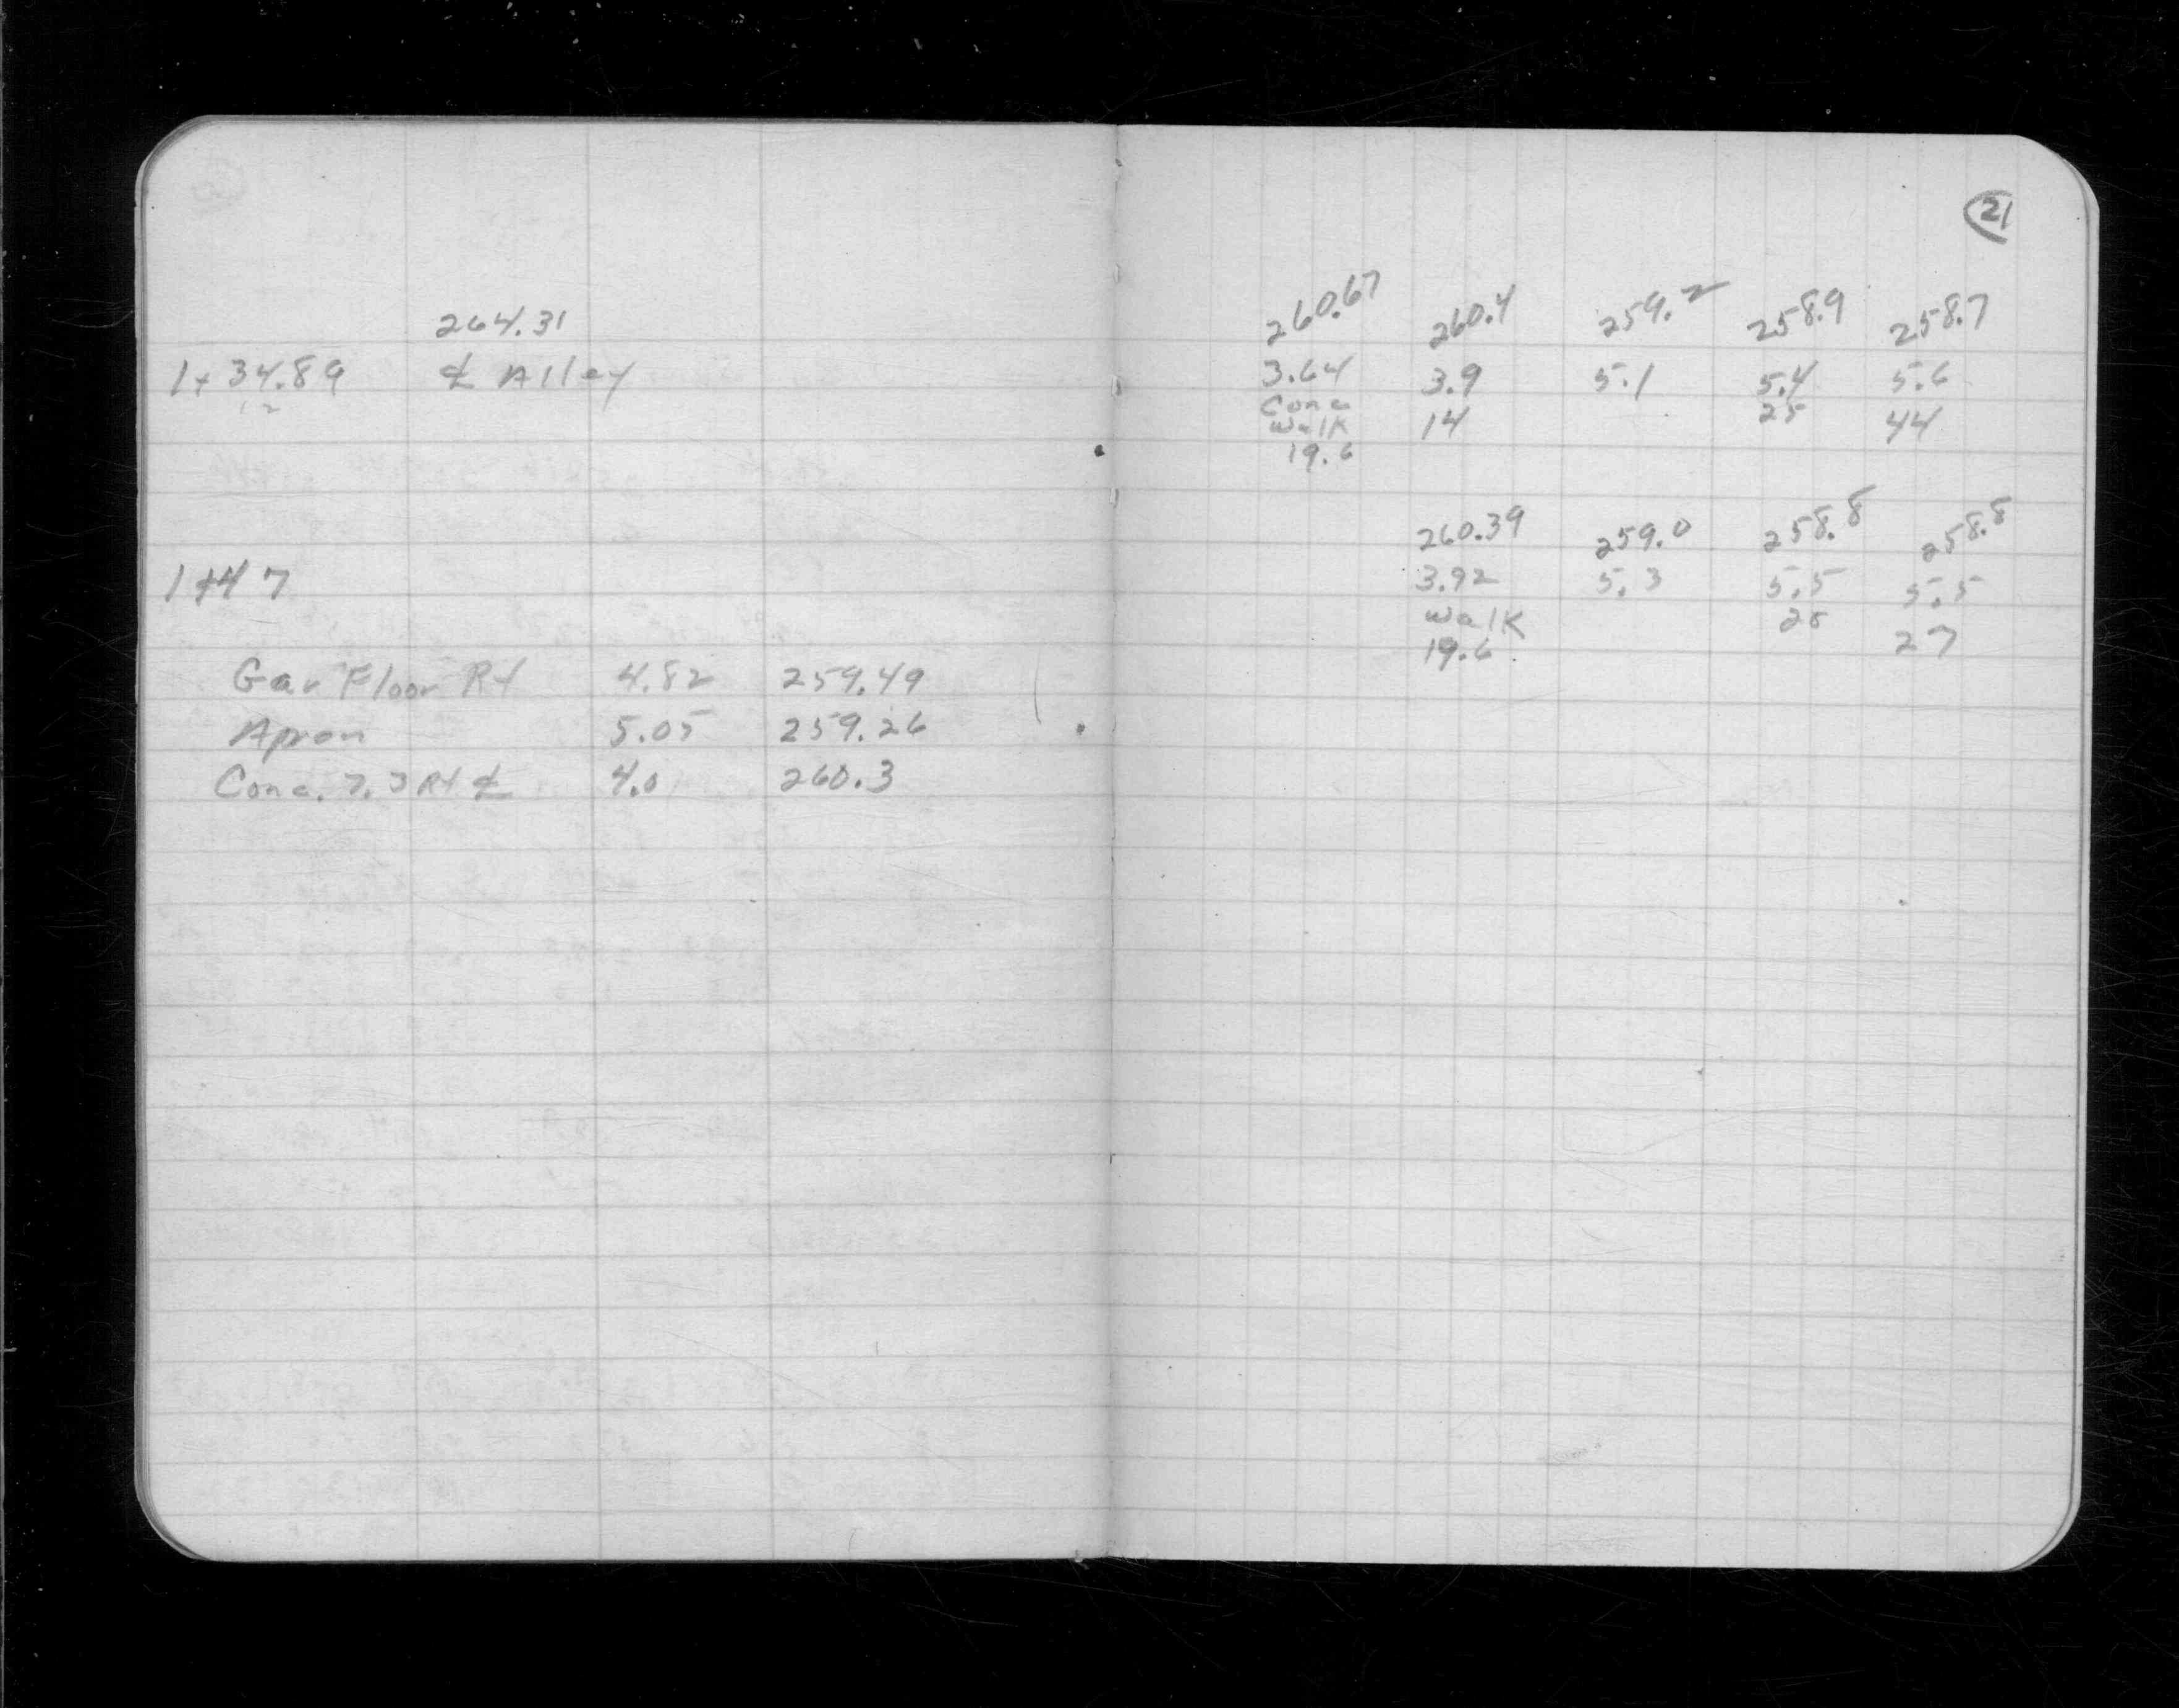 264.31
1+34.89 ℄ Alley
12
1+47
Gar Floor Rt 4.82 259.49
Apron 5.05 259.26
Conc. 7.3 Rt ℄ 4.0 260.3
21
260.67 260.4 259.2 258.9 258.7
3.64 3.9 5.1 5.4 5.6
Conc 14 25 44
Walk
19.6
260.39 259.0 258.8 258.8
3.92 5.3 5.5 5.5
Walk 25 27
19.6